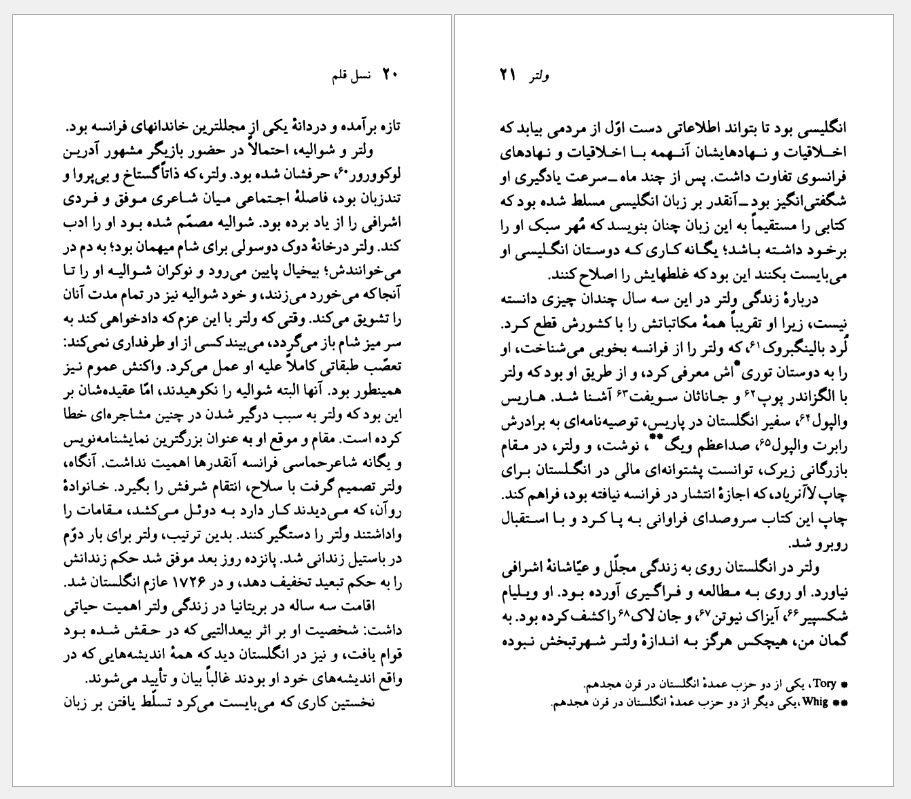 ۲۰ نسل قلم
تازه برآمده و دردانهٔ یکی از مجللترین خاندانهای فرانسه بود.
ولتر و شوالیه، احتمالاً در حضور بازیگر مشهور آدرین
لوکوورور۶۰، حرفشان شده بود. ولتر، که ذاتاً گستاخ و بی‌پروا و
تندزبان بود، فاصلهٔ اجتماعی میان شاعری موفق و فردی
اشرافی را از یاد برده بود. شوالیه مصمّم شده بود او را ادب
کند. ولتر درخانهٔ دوک دوسولی برای شام میهمان بود؛ به دم در
می‌خوانندش؛ بیخیال پایین می‌رود و نوکران شوالیه او را تا
آنجاکه می‌خورد می‌زنند، و خود شوالیه نیز در تمام مدت آنان
را تشویق می‌کند. وقتی که ولتر با این عزم که دادخواهی کند به
سر میز شام باز می‌گردد، می‌بیند کسی از او طرفداری نمی‌کند:
تعصّب طبقاتی کاملاً علیه او عمل می‌کرد. واکنش عموم نیز
همینطور بود. آنها البته شوالیه را نکوهیدند، امّا عقیده‌شان بر
این بود که ولتر به سبب درگیر شدن در چنین مشاجره‌ای خطا
کرده است. مقام و موقع او به عنوان بزرگترین نمایشنامه‌نویس
و یگانه شاعرحماسی فرانسه آنقدرها اهمیت نداشت. آنگاه،
ولتر تصمیم گرفت با سلاح، انتقام شرفش را بگیرد. خانوادهٔ
روآن، که می‌دیدند کار دارد به دوئل می‌کشد، مقامات را
واداشتند ولتر را دستگیر کنند. بدین ترتیب، ولتر برای بار دوّم
در باستیل زندانی شد. پانزده روز بعد موفق شد حکم زندانش
را به حکم تبعید تخفیف دهد، و در ۱۷۲۶ عازم انگلستان شد.
اقامت سه ساله در بریتانیا در زندگی ولتر اهمیت حیاتی
داشت: شخصیت او بر اثر بیعدالتیی که در حقش شده بود
قوام یافت، و نیز در انگلستان دید که همهٔ اندیشه‌هایی که در
واقع اندیشه‌های خود او بودند غالباً بیان و تأیید می‌شوند.
نخستین کاری که می‌بایست می‌کرد تسلّط یافتن بر زبان
ولتر ۲۱
انگلیسی بود تا بتواند اطلاعاتی دست اوّل از مردمی بیابد که
اخلاقیات و نهادهایشان آنهمه با اخلاقیات و نهادهای
فرانسوی تفاوت داشت. پس از چند ماه ـ سرعت یادگیری او
شگفتی‌انگیز بود ـ آنقدر بر زبان انگلیسی مسلط شده بود که
کتابی را مستقیماً به این زبان چنان بنویسد که مُهر سبک او را
برخود داشته باشد؛ یگانه کاری که دوستان انگلیسی او
می‌بایست بکنند این بود که غلطهایش را اصلاح کنند.
دربارهٔ زندگی ولتر در این سه سال چندان چیزی دانسته
نیست، زیرا او تقریباً همهٔ مکاتباتش را با کشورش قطع کرد.
لُرد بالینگبروک۶۱، که ولتر را از فرانسه بخوبی می‌شناخت، او
را به دوستان توری*اش معرفی کرد، و از طریق او بود که ولتر
با الگزاندر پوپ۶۲ و جاناثان سویفت۶۳ آشنا شد. هاریس
والپول۶۴، سفیر انگلستان در پاریس، توصیه‌نامه‌ای به برادرش
رابرت والپول۶۵، صداعظم ویگ**، نوشت، و ولتر، در مقام
بازرگانی زیرک، توانست پشتوانه‌ای مالی در انگلستان برای
چاپ لاآنریاد، که اجازهٔ انتشار در فرانسه نیافته بود، فراهم کند.
چاپ این کتاب سروصدای فراوانی به پا کرد و با استقبال
روبرو شد.
ولتر در انگلستان روی به زندگی مجلّل و عیّاشانهٔ اشرافی
نیاورد. او روی به مطالعه و فراگیری آورده بود. او ویلیام
شکسپیر۶۶، آیزاک نیوتن۶۷، و جان لاک۶۸ راکشف کرده بود. به
گمان من، هیچکس هرگز به اندازهٔ ولتر شهرتبخش نبوده
* Tory، یکی از دو حزب عمدهٔ انگلستان در قرن هجدهم.
** Whig، یکی دیگر از دو حزب عمدهٔ انگلستان در قرن هجدهم.